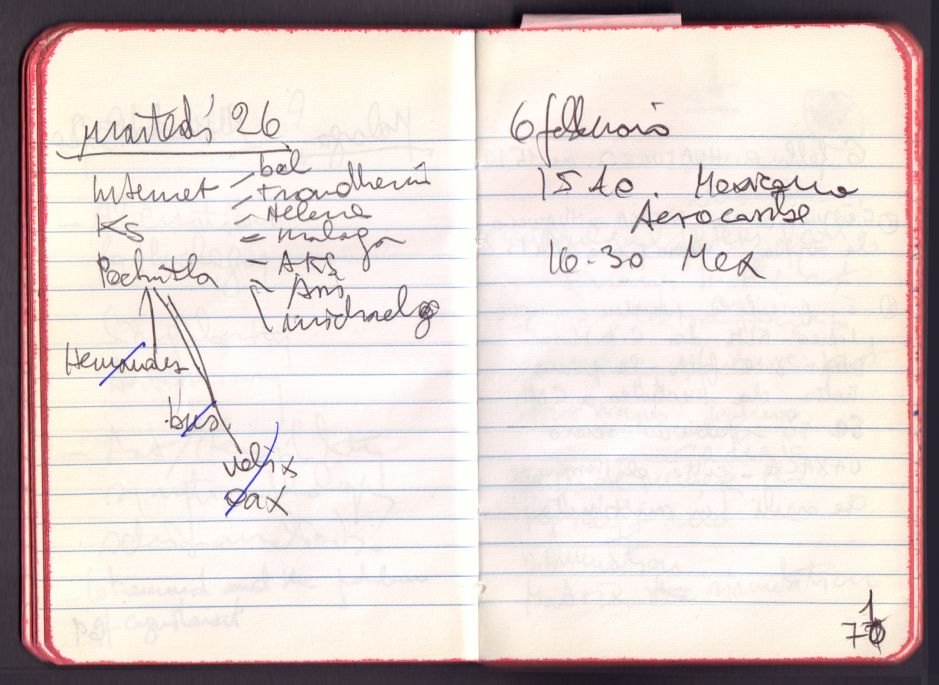 martedì 26
Internet - bol
- Trondheim
KS - Helene
- malaga
Pochutla - AKS
- Ani
- michael
Hernandez
bus
oax
6 febbraio
15 10. Mexicana
Aerocaribe
16-30 Mex
1
70